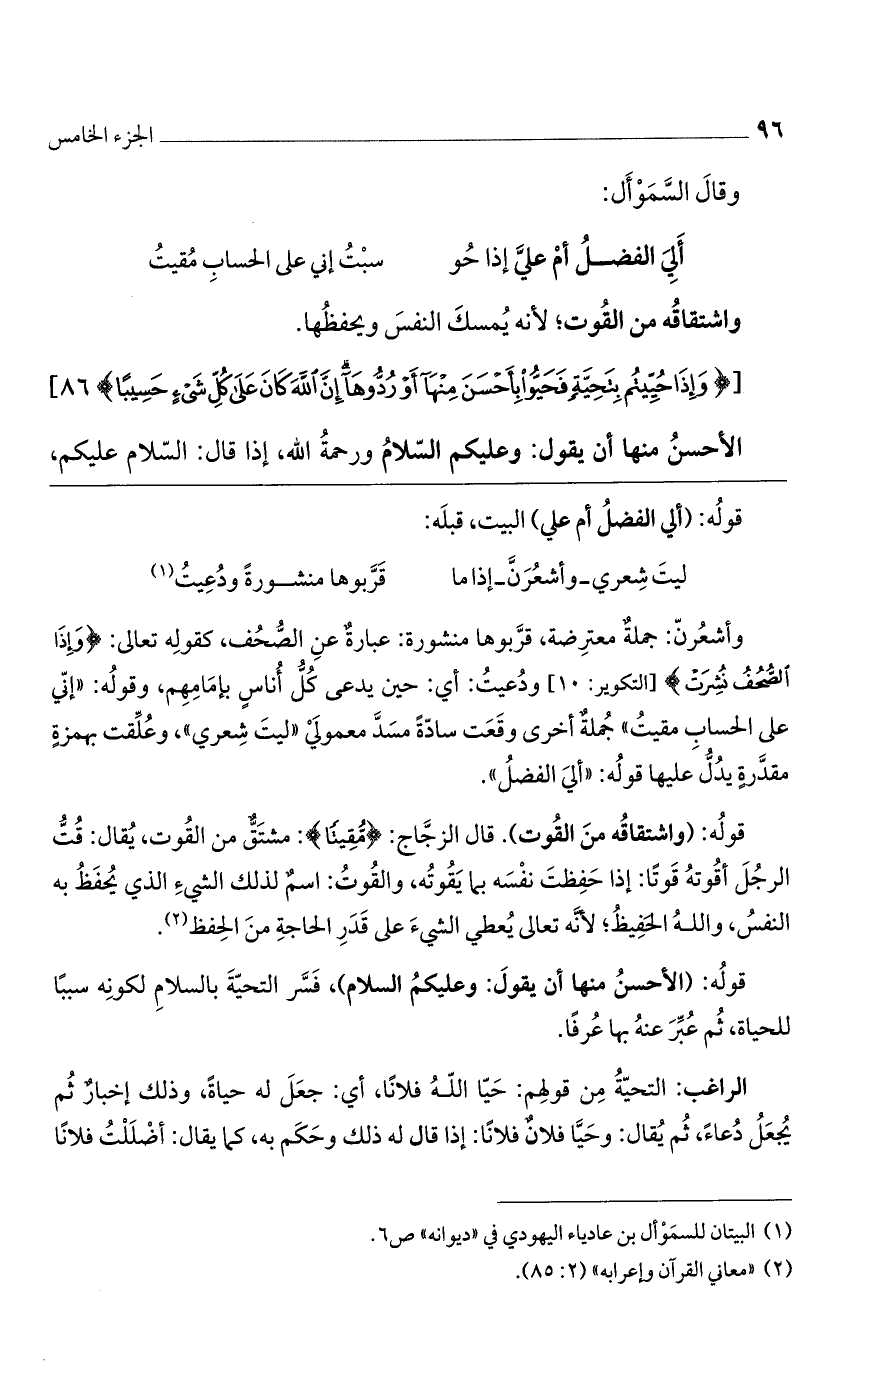 ٩٦ الجزء الخامس
وقالَ السَّمَوْأَل:
أَلِيَ الفضــلُ أمْ عليَّ إذا حُو سبْتُ إني على الحسابِ مُقيتُ
واشتقاقُه من القُوت؛ لأنه يُمسكَ النفسَ ويحفظُها.
[﴿ وَإِذَا حُيِّيتُم بِتَحِيَّةٍ فَحَيُّواْ بِأَحْسَنَ مِنْهَآ أَوْ رُدُّوهَآ ۗ إِنَّ ٱللَّهَ كَانَ عَلَىٰ كُلِّ شَىْءٍ حَسِيبًا ﴾ ٨٦]
الأحسنُ منها أن يقول: وعليكم السّلامُ ورحمةُ الله، إذا قال: السّلام عليكم،
قولُه: (ألي الفضلُ أم علي) البيت، قبلَه:
ليتَ شِعري ـ وأشعُرَنَّ ـ إذا ما قَرَّبوها منشــورةً ودُعِيتُ(١)
وأشعُرنّ: جملةٌ معترضة، قرَّبوها منشورة: عبارةٌ عنِ الصُّحُف، كقولِه تعالى: ﴿وَإِذَا
ٱلصُّحُفُ نُشِرَتْ﴾ [التكوير: ١٠] ودُعيتُ: أي: حين يدعى كُلُّ أُناسٍ بإمَامِهِم، وقولُه: «إنّي
على الحسابِ مقيتُ» جُملةٌ أخرى وقَعَت سادّةً مسَدَّ معمولَيْ «ليتَ شِعري»، وعُلِّقت بهمزةٍ
مقدَّرةٍ يدُلُّ عليها قولُه: «أليَ الفضلُ».
قولُه: (واشتقاقُه منَ القُوت). قال الزجَّاج: ﴿مُّقِيتًا﴾: مشتَقٌّ من القُوت، يُقال: قُتُّ
الرجُلَ أقُوتهُ قَوتًا: إذا حَفِظتَ نفْسَه بما يَقُوتُه، والقُوتُ: اسمٌ لذلك الشيءِ الذي يُحفَظُ به
النفسُ، واللـهُ الحَفِيظُ؛ لأنَّه تعالى يُعطي الشيءَ على قَدَرِ الحاجةِ منَ الحِفظ(٢).
قولُه: (الأحسنُ منها أن يقولَ: وعليكمُ السلام)، فَسَّر التحيّةَ بالسلامِ لكونِه سببًا
للحياة، ثُم عُبِّرَ عنهُ بها عُرفًا.
الراغب: التحيّةُ مِن قولهِم: حَيّا اللـهُ فلانًا، أي: جعلَ له حياةً، وذلك إخبارٌ ثُم
يُجعَلُ دُعاءً، ثُم يُقال: وحَيَّا فلانٌ فلانًا: إذا قال له ذلك وحَكَم به، كما يقال: أضْلَلْتُ فلانًا
(١) البيتان للسمَوْأل بن عادياء اليهودي في «ديوانه» ص٦.
(٢) «معاني القرآن وإعرابه» (٢: ٨٥).